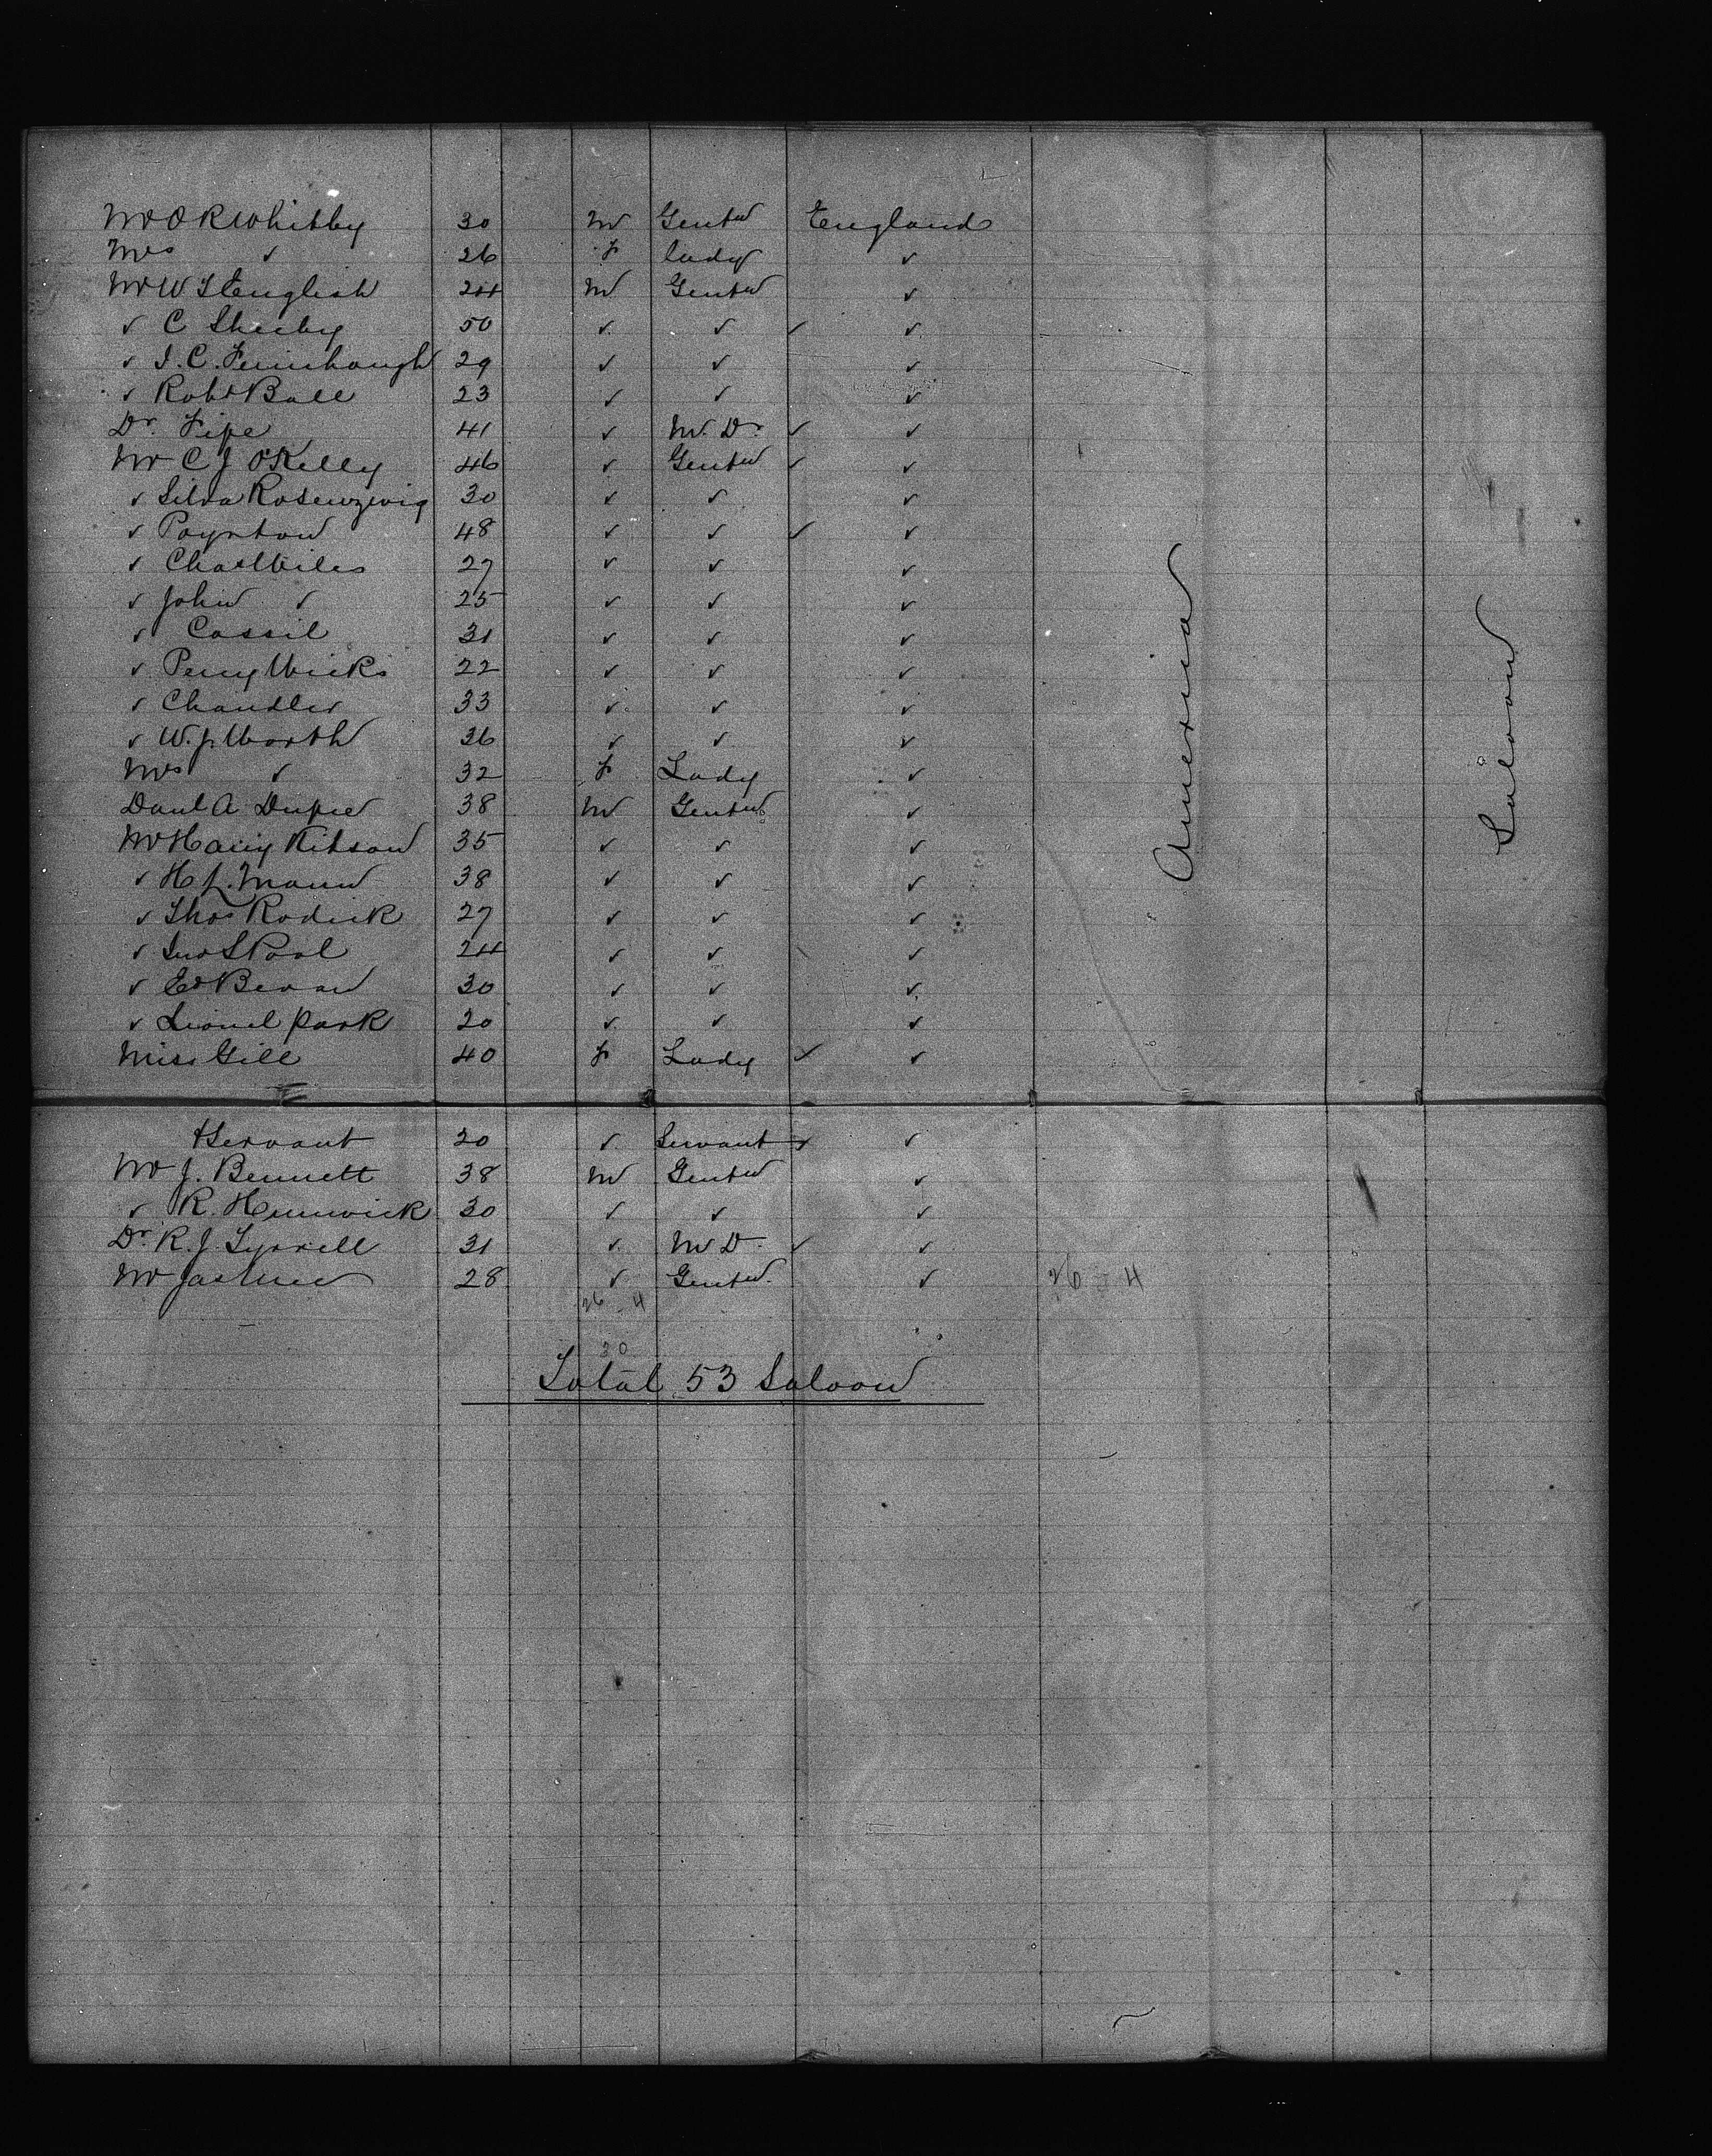 Mr O R Whitby 30 M Gentn England
Mrs ✓ 26 F lady ✓
Mr W S English 24 M Gentn ✓
✓ C Sheeby 50 ✓ ✓ ✓ ✓
✓ J. C. Fernihough 29 ✓ ✓ ✓
✓ Robt Ball 23 ✓ ✓ ✓
Dr. Fipe 41 ✓ M. D. ✓ ✓
Mr C J O'Kelly 46 ✓ Gentn ✓ ✓
✓ Silva Rosenzwig 30 ✓ ✓ ✓
✓ Poynton 48 ✓ ✓ ✓ ✓
✓ Chas Wiles 27 ✓ ✓ ✓
✓ John ✓ 25 ✓ ✓ ✓
✓ Cassil 31 ✓ ✓ ✓
✓ Percy Wicks 22 ✓ ✓ ✓
✓ Chandler 33 ✓ ✓ ✓
✓ W. J. Worth 36 ✓ ✓ ✓
Mrs ✓ 32 F Lady ✓
Danl A Dupee 38 M Gentn ✓
Mr Harry Kitson 35 ✓ ✓ ✓
✓ H J. Mann 38 ✓ ✓ ✓
✓ Thos Rodick 27 ✓ ✓ ✓
✓ Jno S Pool 24 ✓ ✓ ✓
✓ Ed Bevan 30 ✓ ✓ ✓
✓ Lionel Park 20 ✓ ✓ ✓
Miss Gill 40 F Lady ✓ ✓
America
Saloon
+Servant 20 ✓ Servant ✓ ✓
Mr J. Bennett 38 M Gentn ✓
✓ R. Hunwick 30 ✓ ✓ ✓
Dr. R. J. Tyrrell 31 ✓ M D. ✓ ✓
Mr Jas 28 ✓ Gentn. ✓ 26 - 4
26 - 4
30
Total 53 Saloon